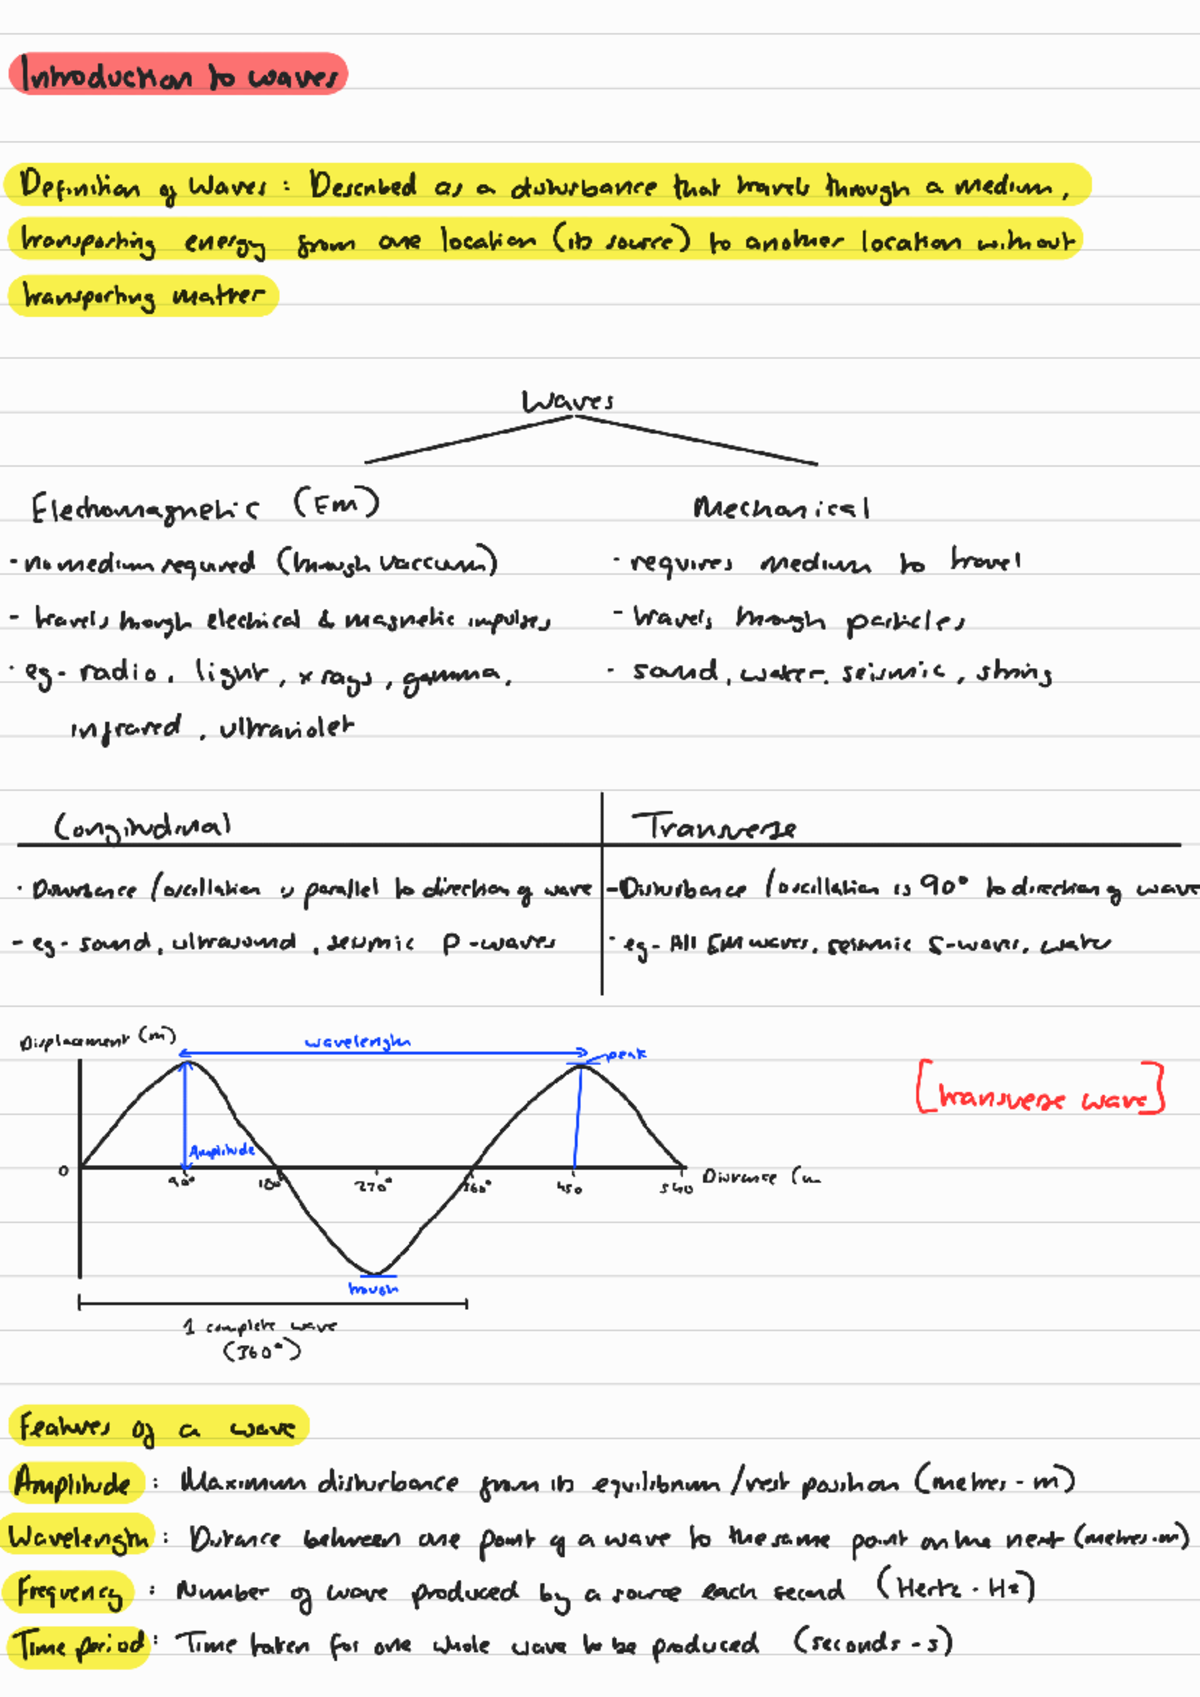 Introduction to waves
Definition of Waves : Described as a disturbance that travels through a medium,
transporting energy from one location (its source) to another location without
transporting matter
Waves
Electromagnetic (Em)
- no medium required (through vaccum)
- travels through electrical & magnetic impulses
· eg- radio, light, x rays, gamma,
infrared, ultraviolet
Mechanical
· requires medium to travel
- travels through particles
- sound, water, seismic, string
Longitudinal
· Disturbance / oscillation is parallel to direction of wave
- eg- sound, ultrasound, seismic P-waves
Transverse
- Disturbance / oscillation is 90° to direction of wave
· eg- All EM waves, seismic S-waves, water
Displacement (m)
wavelength
peak
[transverse wave]
Amplitude
0
90°
180°
270°
360°
450
540
Distance (m
trough
1 complete wave
(360°)
Features of a wave
Amplitude : Maximum disturbance from its equilibrium / rest position (metres - m)
Wavelength : Distance between one point of a wave to the same point on the next (metres - m)
Frequency : Number of wave produced by a source each second (Hertz - Hz)
Time period : Time taken for one whole wave to be produced (seconds - s)